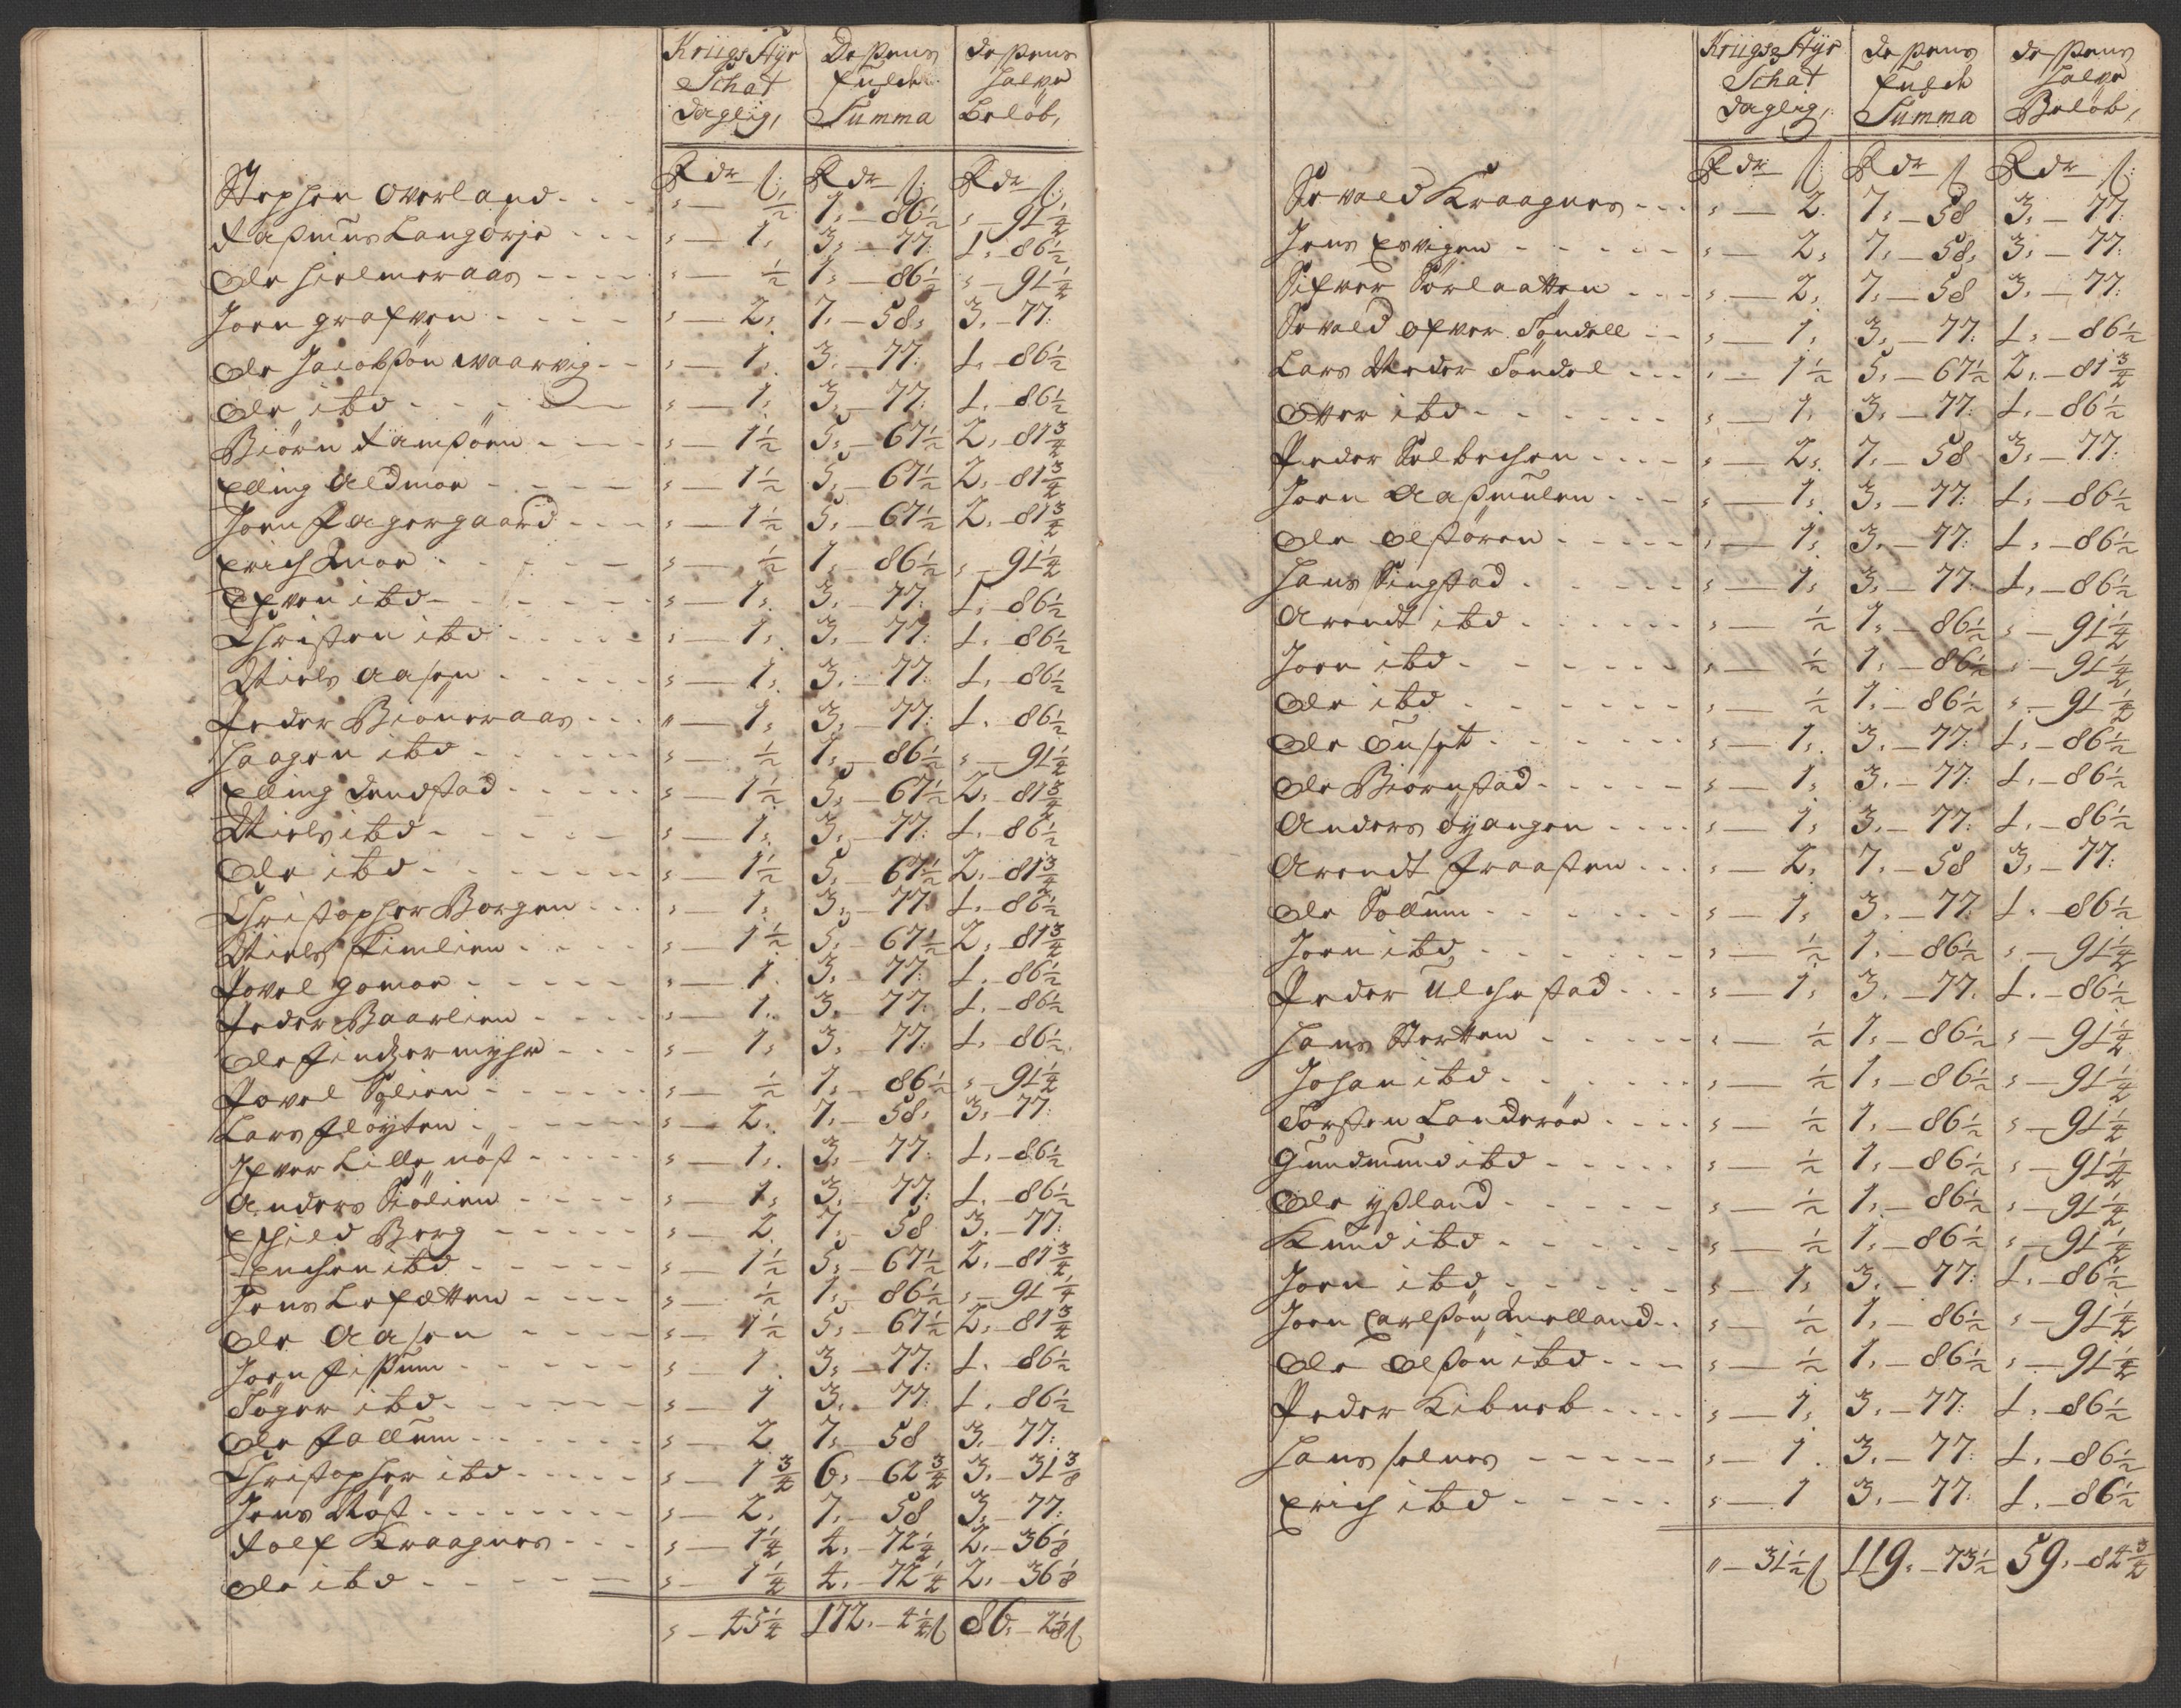 Kriigs Styr Dessens dessens
Schat fulde halve
daglig, Summa Beløb,
Rdr ſ: Rdr ſ: Rdr ſ:
Stephen Overland - - - „ — ½ 1: — 86½ „ — 91¼
Rasmus Langørje - - - „ — 1: 3: — 77: 1: — 86½
Ole Hielmeraas - - - - „ — ½ 1: — 86½ „ — 91¼
Joen grefven - - - - „ — 2: 7: — 58: 3: — 77:
Ole Jacobsøn Waarvig - - „ — 1: 3: — 77: 1: — 86½
Ole ibd - - - - „ — 1: 3: — 77: 1: — 86½
Biørn Ramsøen - - - - „ — 1½ 5: — 67½ 2: — 81¾
Elling Aldmoe - - - - „ — 1½ 5: — 67½ 2: — 81¾
Joen Fagergaard - - - „ — 1½ 5: — 67½ 2: — 81¾
Erich Moe - - - - - „ — ½ 1: — 86½ „ — 91¼
Efven ibd - - - - - „ — 1: 3: — 77: 1: — 86½
Christen ibd - - - - „ — 1: 3: — 77: 1: — 86½
Niels Aasen - - - - - „ — 1: 3: — 77: 1: — 86½
Peder Biøneraas - - - „ — 1: 3: — 77: 1: — 86½
Haagen ibd - - - - - „ — ½ 1: — 86½ „ — 91¼
Elling Dendstad - - - - „ — 1½ 5: — 67½ 2: — 81¾
Niels ibd - - - - - „ — 1: 3: — 77: 1: — 86½
Ole ibd - - - - - - „ — 1½ 5: — 67½ 2: — 81¾
Christopher Borgen - - - „ — 1: 3: — 77: 1: — 86½
Niels Kimlien - - - - „ — 1½ 5: — 67½ 2: — 81¾
Povel gomoe - - - - - „ — 1: 3: — 77: 1: — 86½
Peder Baarlien - - - - „ — 1: 3: — 77: 1: — 86½
Ole Findzermyhr - - - „ — 1: 3: — 77: 1: — 86½
Povel Solien - - - - - „ — ½ 1: — 86½ „ — 91¼
Lars Fløyten - - - - - „ — 2: 7: — 58: 3: — 77:
Ifver Lille nøst - - - - „ — 1: 3: — 77: 1: — 86½
Anders Siølien - - - - „ — 1: 3: — 77: 1: — 86½
Eskild Berg - - - - - „ — 2 7: — 58 3: — 77:
Enchen ibd - - - - - „ — 1½ 5: — 67½ 2: — 81¾
Jens Lefætten - - - - „ — ½ 1: — 86½ „ — 91¼
Ole Aasen - - - - „ — 1½ 5: — 67½ 2: — 81¾
Joen Fissum - - - - - „ — 1 3: — 77: 1: — 86½
Tøger ibd - - - - - - „ — 1 3: — 77: 1: — 86½
Ole Fallum - - - - - „ — 2 7: — 58 3: — 77:
Christopher ibd - - - - „ — 1¾ 6: — 62¾ 3: — 31⅜
Jens Nøst - - - - - - „ — 2: 7: — 58 3: — 77:
Rolf Kraagnes - - - „ — 1¼ 4: — 72¼ 2: — 36⅛
Ole ibd - - - - - „ — 1¼ 4: — 72¼ 2: — 36⅛
„ — 45¼ 172: — 4¼ſ 86: — 2⅛ſ
Kriigs Styr dessens dessens
Schat fulde halve
daglig, Summa Beløb,
Rdr ſ: Rdr ſ Rdr ſ:
Sevald Kraagnes - - - „ — 2. 7: — 58 3: — 77:
Jens Esvigen - - - - - „ — 2: 7: — 58: 3: — 77:
Sifver Sørlaatten - - - „ — 2: 7: — 58 3: — 77:
Sevald Ofver Søndell - - „ — 1: 3: — 77: 1: — 86½
Lars Neder Søndel - - - „ — 1½ 5: — 67½ 2: — 81¾
Otter ibd - - - - - - „ — 1: 3: — 77: 1: — 86½
Peder Solbechen - - - - „ — 2: 7: — 58 3: — 77:
Joen Aasmulen - - - „ — 1: 3: — 77: 1: — 86½
Ole Olstøren - - - - - „ — 1: 3: — 77: 1: — 86½
Hans Singstad - - - - - „ — 1: 3: — 77: 1: — 86½
Arendt ibd - - - - - - „ — ½ 1: — 86½ „ — 91¼
Joen ibd - - - - - - „ — ½ 1: — 86½ „ — 91¼
Ole ibd - - - - - - „ — ½ 1: — 86½ „ — 91¼
Ole Ouset - - - - - - „ — 1: 3: — 77: 1: — 86½
Ole Biørnstad - - - - - „ — 1: 3: — 77: 1: — 86½
Anders Øyangen - - - - „ — 1: 3: — 77: 1: — 86½
Arendt Fraasten - - - „ — 2: 7: — 58 3: — 77:
Ole Sollum - - - - - - „ — 1: 3: — 77: 1: — 86½
Joen ibd - - - - - - „ — ½ 1: — 86½ „ — 91¼
Peder Ulchestad - - - „ — 1: 3: — 77. 1: — 86½
Hans Stretten - - - - - „ — ½ 1: — 86½ „ — 91¼
Johan ibd - - - - - - „ — ½ 1: — 86½ „ — 91¼
Torsten Landerøe - - - - „ — ½ 1: — 86½ „ — 91¼
Gundmund ibd - - - - - „ — ½ 1: — 86½ „ — 91¼
Ole Ysland - - - - - „ — ½ 1: — 86½ „ — 91¼
Knud ibd - - - - - - „ — ½ 1: — 86½ „ — 91¼
Joen ibd - - - - - „ — 1: 3: — 77: 1: — 86½
Joen Carlsøn Qvelland - - „ — ½ 1: — 86½ „ — 91¼
Ole Olsøn ibd - - - - „ — ½ 1: — 86½ „ — 91¼
Peder Kibneb - - - - „ — 1: 3: — 77: 1: — 86½
Hans selnes - - - - - „ — 1. 3: — 77: 1: — 86½
Erich ibd - - - - - „ — 1 3: — 77: 1: — 86½
„ — 31½ſ 119: — 73½ 59: — 84¾